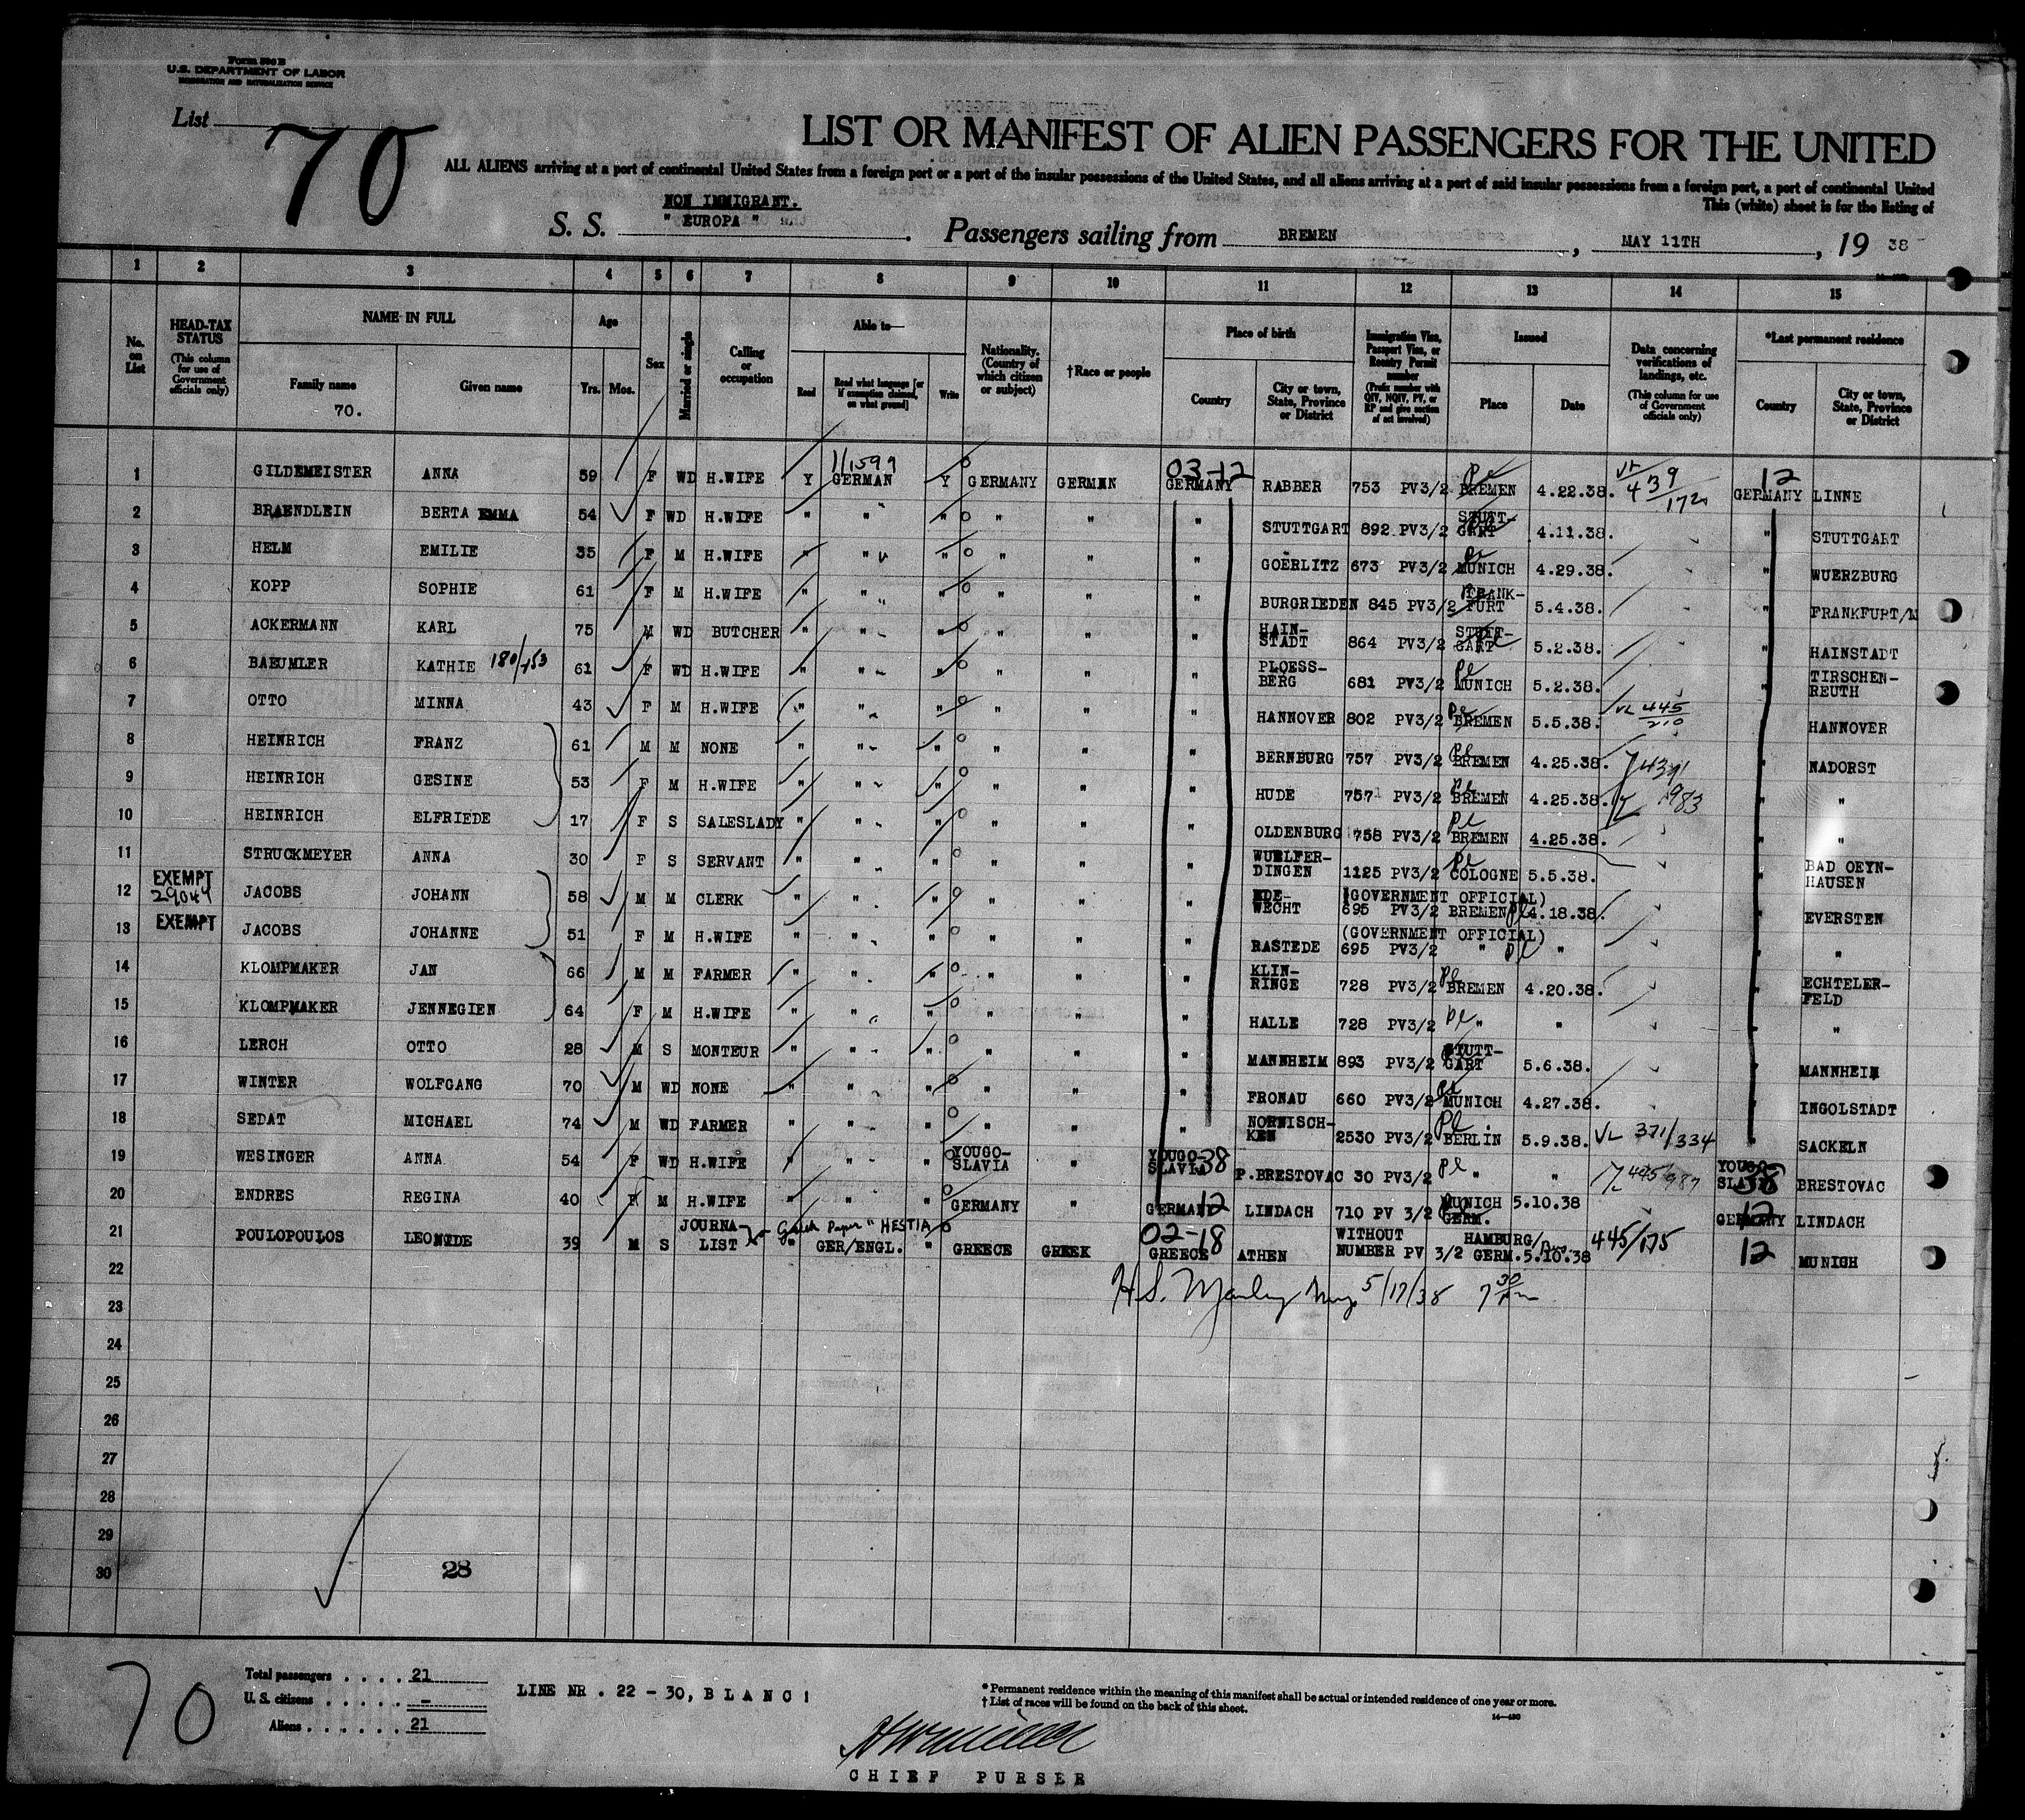 Form 500 B
U.S. DEPARTMENT OF LABOR
IMMIGRATION AND NATURALIZATION SERVICE
List 70
LIST OR MANIFEST OF ALIEN PASSENGERS FOR THE UNITED
ALL ALIENS arriving at a port of continental United States from a foreign port or a port of the insular possessions of the United States, and all aliens arriving at a port of said insular possessions from a foreign port, a port of continental United
This (white) sheet is for the listing of
NON IMMIGRANT.
S. S. " EUROPA " . Passengers sailing from BREMEN , MAY 11TH , 19 38
1 2 3 4 5 6 7 8 9 10 11 12 13 14 15
No. on List
HEAD-TAX STATUS (This column for use of Government officials only)
NAME IN FULL
Family name
70.
Given name
Age
Yrs. Mos.
Sex
Married or single
Calling or occupation
Able to—
Read
Read what language [or if exemption claimed, on what ground]
Write
Nationality. (Country of which citizen or subject)
†Race or people
Place of birth
Country
City or town, State, Province or District
Immigration Visa, Passport Visa, or Reentry Permit number (Prefix number with QIV, NQIV, PV, or RP and give section of act involved)
Issued
Place
Date
Data concerning verifications of landings, etc. (This column for use of Government officials only)
*Last permanent residence
Country
City or town, State, Province or District
1/1599 03-12 12
1 GILDEMEISTER ANNA 59 F WD H.WIFE Y GERMAN Y GERMANY GERMAN GERMANY RABBER 753 PV3/2 BREMEN 4.22.38. GERMANY LINNE
2 BRAENDLEIN BERTA EMMA 54 F WD H.WIFE " " " " " " STUTTGART 892 PV3/2 STUTT-GART 4.11.38. " STUTTGART
3 HELM EMILIE 35 F M H.WIFE " " " " " " GOERLITZ 673 PV3/2 MUNICH 4.29.38. " WUERZBURG
4 KOPP SOPHIE 61 F M H.WIFE " " " " " " BURGRIEDEN 845 PV3/2 FRANK-FURT 5.4.38. " FRANKFURT/M
5 ACKERMANN KARL 75 M WD BUTCHER " " " " " " HAIN-STADT 864 PV3/2 STUTT-GART 5.2.38. " HAINSTADT
6 BAEUMLER KATHIE 180/153 61 F WD H.WIFE " " " " " " PLOESS-BERG 681 PV3/2 MUNICH 5.2.38. " TIRSCHEN-REUTH
7 OTTO MINNA 43 F M H.WIFE " " " " " " HANNOVER 802 PV3/2 BREMEN 5.5.38. " HANNOVER
8 HEINRICH FRANZ 61 M M NONE " " " " " " BERNBURG 757 PV3/2 BREMEN 4.25.38. " NADORST
9 HEINRICH GESINE 53 F M H.WIFE " " " " " " HUDE 757 PV3/2 BREMEN 4.25.38. " "
10 HEINRICH ELFRIEDE 17 F S SALESLADY " " " " " " OLDENBURG 758 PV3/2 BREMEN 4.25.38. " "
11 STRUCKMEYER ANNA 30 F S SERVANT " " " " " " WUELFER-DINGEN 1125 PV3/2 COLOGNE 5.5.38. " BAD OEYN-HAUSEN
12 EXEMPT 29044 JACOBS JOHANN 58 M M CLERK " " " " " " EDE-WECHT (GOVERNMENT OFFICIAL) 695 PV3/2 BREMEN 4.18.38. " EVERSTEN
13 EXEMPT JACOBS JOHANNE 51 F M H.WIFE " " " " " " RASTEDE (GOVERNMENT OFFICIAL) 695 PV3/2 " " " "
14 KLOMPMAKER JAN 66 M M FARMER " " " " " " KLIN-RINGE 728 PV3/2 BREMEN 4.20.38. " ECHTELER-FELD
15 KLOMPMAKER JENNEGIEN 64 F M H.WIFE " " " " " " HALLE 728 PV3/2 " " " "
16 LERCH OTTO 28 M S MONTEUR " " " " " " MANNHEIM 893 PV3/2 STUTT-GART 5.6.38. " MANNHEIM
17 WINTER WOLFGANG 70 M WD NONE " " " " " " FRONAU 660 PV3/2 MUNICH 4.27.38. " INGOLSTADT
18 SEDAT MICHAEL 74 M WD FARMER " " " " " " NORWISCH-KEN 2530 PV3/2 BERLIN 5.9.38. VL 371/334 " SACKELN
19 WESINGER ANNA 54 F WD H.WIFE " " " YOUGO-SLAVIA " YOUGO-SLAVIA 38 P.BRESTOVAC 30 PV3/2 " " YOUGO-SLAVIA 38 BRESTOVAC
20 ENDRES REGINA 40 F M H.WIFE " " " GERMANY " GERMANY 12 LINDACH 710 PV 3/2 MUNICH GERM. 5.10.38 GERMANY 12 LINDACH
21 POULOPOULOS LEONIDE 39 M S JOURNA-LIST Greek Paper "HESTIA" " GER/ENGL. " GREECE GREEK 02-18 GREECE ATHEN WITHOUT NUMBER PV 3/2 HAMBURG/GERM. 5.10.38 445/175 12 MUNICH
22 H.S. Manley 5/17/38 7 30
23
24
25
26
27
28
29
30
28
70
Total passengers . . . . 21
U. S. citizens . . . . . –
Aliens . . . . . . 21
LINE NR . 22 - 30, B L A N C !
* Permanent residence within the meaning of this manifest shall be actual or intended residence of one year or more.
† List of races will be found on the back of this sheet.
14—430
CHIEF PURSER